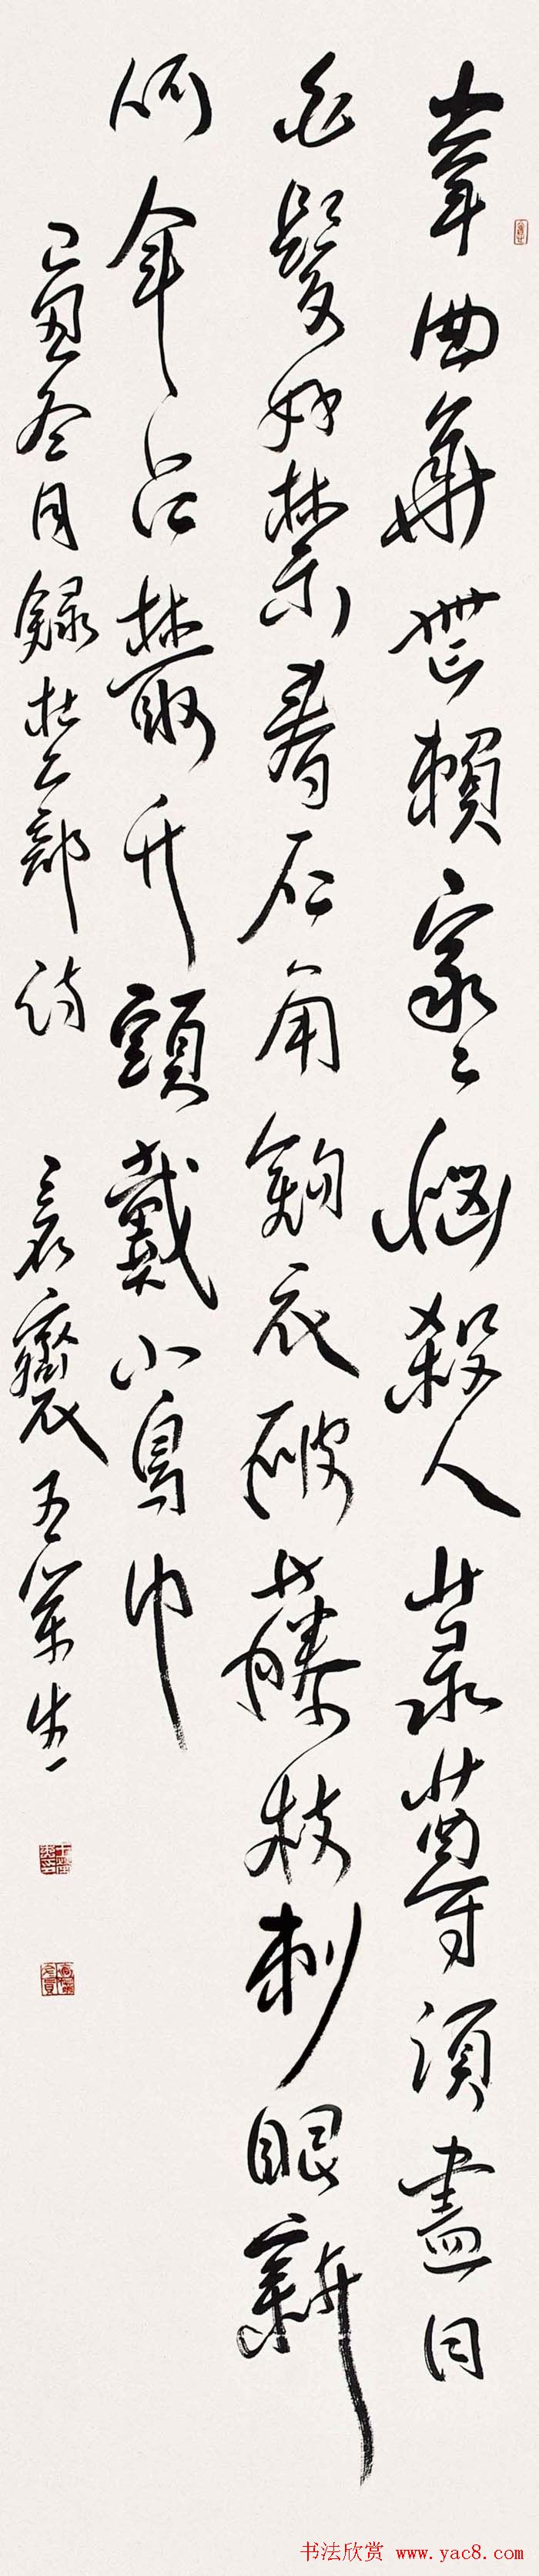 韋曲華無賴家々惱殺人菉尊須盡日
白髮好禁春石角鉤衣破藤枝刺眼新
何年占叢竹頭戴小烏巾
己丑冬月錄杜工部詩
书法欣赏 www.yac8.com